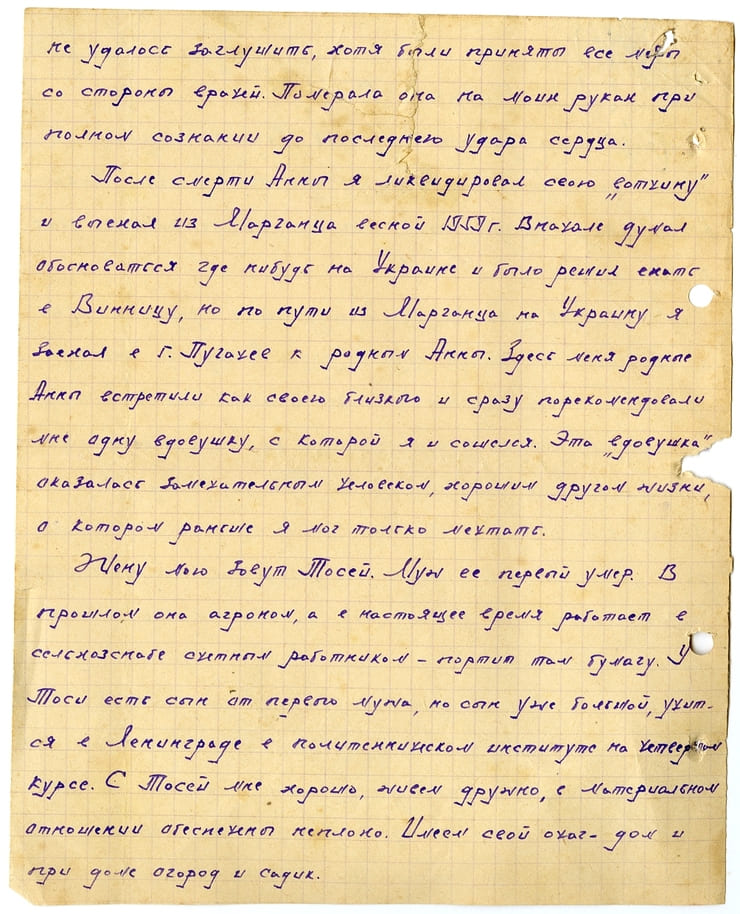 не удалось заглушить, хотя были приняты все меры
со стороны врачей. Померала она на моих руках при
полном сознании до последнего удара сердца.
После смерти Анны я ликвидировал свою „вотчину"
и выехал из Марганца весной 1959 г. Вначале думал
обосноваться где нибудь на Украине и было решил ехать
в Винницу, но по пути из Марганца на Украину я
заехал в г. Пугачев к родным Анны. Здесь меня родные
Анны встретили как своего близкого и сразу порекомендовали
мне одну вдовушку, с которой я и сошелся. Эта „вдовушка"
оказалась замечательным человеком, хорошим другом жизни,
о котором раньше я мог только мечтать.
Жену мою зовут Тосей. Муж ее первый умер. В
прошлом она агроном, а в настоящее время работает в
сельхозснабе счетным работником – портит там бумагу. У
Тоси есть сын от первого мужа, но сын уже большой, учит-
ся в Ленинграде в политехническом институте на четвертом
курсе. С Тосей мне хорошо, живем дружно, в материальном
отношении обеспечены неплохо. Имеем свой очаг – дом и
при доме огород и садик.